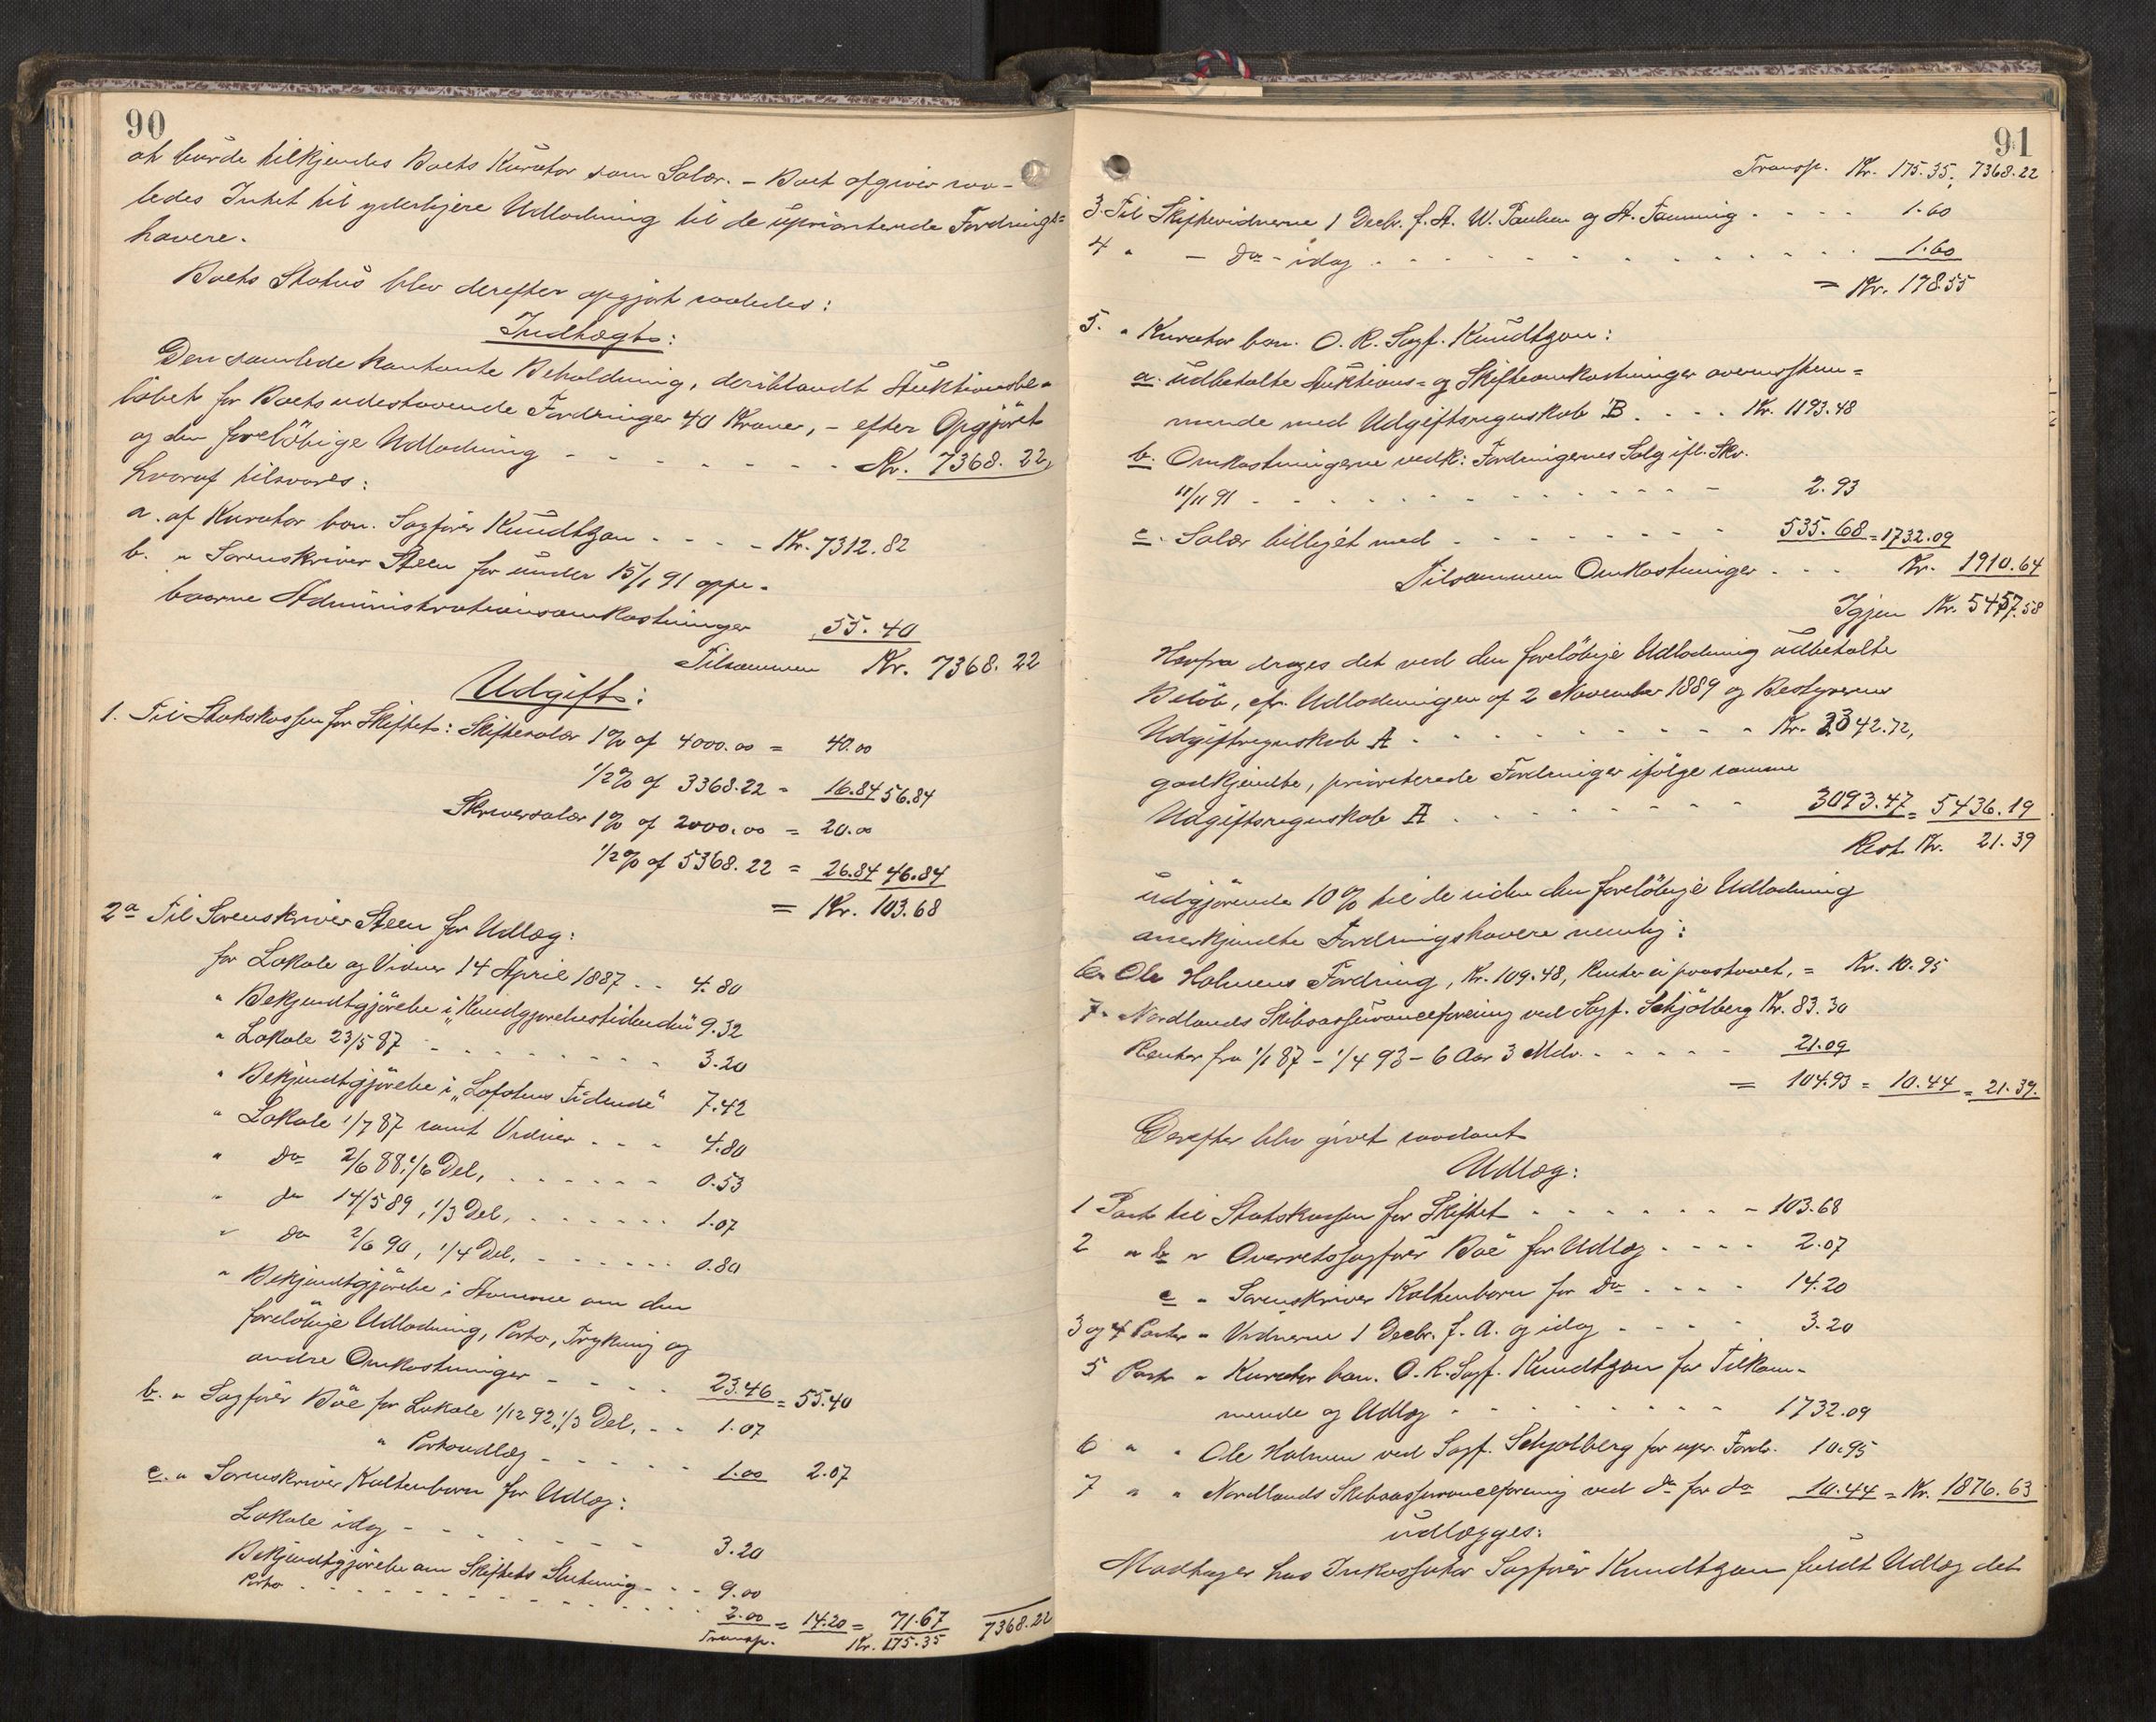 90
at burde tilkjendes Boets Kurator som Salær. – Boet afgiver saa-
ledes Intet til yderligere Udlodning til de upriorterede Fordrings=
havere.
Boets Status blev derefter opgjort saaledes:
Indtægt:
Den samlede kontante Beholdning, deriblandt Auktionsbe-
löbet for Boets udestaaende Fordringer 40 Kroner, – efter Opgjöret
og den forelöbige Udlodning - - - - - - - Kr. 7368. 22,
hvoraf tilsvares:
a. af Kurator bon. Sagförer Knudtzon - - - - Kr. 7312. 82
b. " Sorenskriver Steen for under 15/1 91 oppe-
baarne Administrationsomkostninger 55. 40
Tilsammen Kr. 7368. 22
Udgift:
1. Til Statskassen for Skiftet: Skiftesalær 1% af 4000.00 = 40.00
1/2% af 3368.22 = 16.84 56.84
Skriversalær 1% af 2000.00 = 20.00
1/2% af 5368.22 = 26.84 46.84
= Kr. 103.68
2a Til Sorenskriver Steen for Udlæg:
for Lokale og Vidner 14 April 1887 . . 4.80
" Bekjendtgjörelse i "Kundgjørelsestidenden" 9.32
" Lokale 23/5 87 - - - - - - - - 3.20
" Bekjendtgjörelse i "Lofotens Tidende" 7.42
" Lokale 1/7 87 samt Vidner . . - 4.80
" do 2/6 88, 1/6 Del, . . . . . . 0.53
" do 14/5 89, 1/3 Del, . . . . . . 1.07
" do 2/6 90, 1/4 Del, . . . . . . 0.80
" Bekjendtgjörelse i Aviserne om den
forelöbige Udlodning, Porto, Trykning og
andre Omkostninger - - - - 23.46 = 55.40
b. " Sagförer Böe for Lokale 1/12 92, 1/3 Del, . - 1.07
" Portoudlæg - - - - - 1.00 2.07
c. " Sorenskriver Kaltenborn for Udlæg:
Lokale idag - - - - - - - 3.20
Bekjendtgjörelse om Skiftets Slutning - - - 9.00
Porto - - - - - - - - - - 2.00 = 14.20 = 71.67 7368.22
Transp. Kr. 175.35
91
Transp. Kr. 175.35, 7368.22
3. Til Skiftevidnerne 1 Decbr. f. A. W. Paulsen og A. Tanning . . . . 1.60
4 " - do - idag . . . . . . . . . . . 1.60
= Kr. 178.55
5. " Kurator bon. O. R. Sagf. Knudtzon:
a. udbetalte Auktions- og Skifteomkostninger overensstem=
mende med Udgiftsregnskab B . . . . Kr. 1193.48
b. Omkostningerne vedk: Fordringernes Salg ifl. Skr.
11/11 91 - - - - - - - - - - 2.93
c. Salær billiget med - - - - - - - 535.68 = 1732.09
Tilsammen Omkostninger . . . Kr. 1910.64
Igjen Kr. 5457.58
Herfra drages det ved den forelöbige Udlodning udbetalte
Belöb, cfr. Udlodningen af 2 November 1889 og Bestyrerens
Udgiftregnskab A . . . . . . . . . . Kr. 2342.72,
godkjendte, prioriterede Fordringer ifölge samme
Udgiftsregnskab A . . . . . . . . 3093.47 = 5436.19
Rest Kr. 21.39
udgjörende 10% til de siden den forelöbige Udlodning
anerkjendte Fordringshavere nemlig:
6. Ole Holmens Fordring, Kr. 109.48, Renter ei paastaaet, = Kr. 10.95
7. Nordlands Skibsassuranceforening ved Sagf. Schjölberg Kr. 83.30
Renter fra 1/1 87 – 1/4 93 – 6 Aar 3 Mdr. - - - - - 21.09
= 104.93 = 10.44 = 21.39.
Derefter blev givet saadant
Udlæg:
1 Post til Statskassen for Skiftet - - - - - - - 103.68
2 " b " Overretssagförer Böe for Udlæg . . . . 2.07
c " Sorenskriver Kaltenborn for do . . . . 14.20
3 og 4 Poster " Vidnerne 1 Decbr. f. A. og idag - - - - 3.20
5 Post " Kurator bon. O. R. Sagf. Knudtzon for Tilkom-
mende og Udlæg - - - - - - - - 1732.09
6 " " Ole Holmen ved Sagf. Schjölberg for upr. Fordr. 10.95
7 " " Nordlands Skibsassuranceforening ved do for do 10.44 = Kr. 1876.63
udlægges:
Modtager hos Inkassator Sagförer Knudtzon fuldt Udlæg det